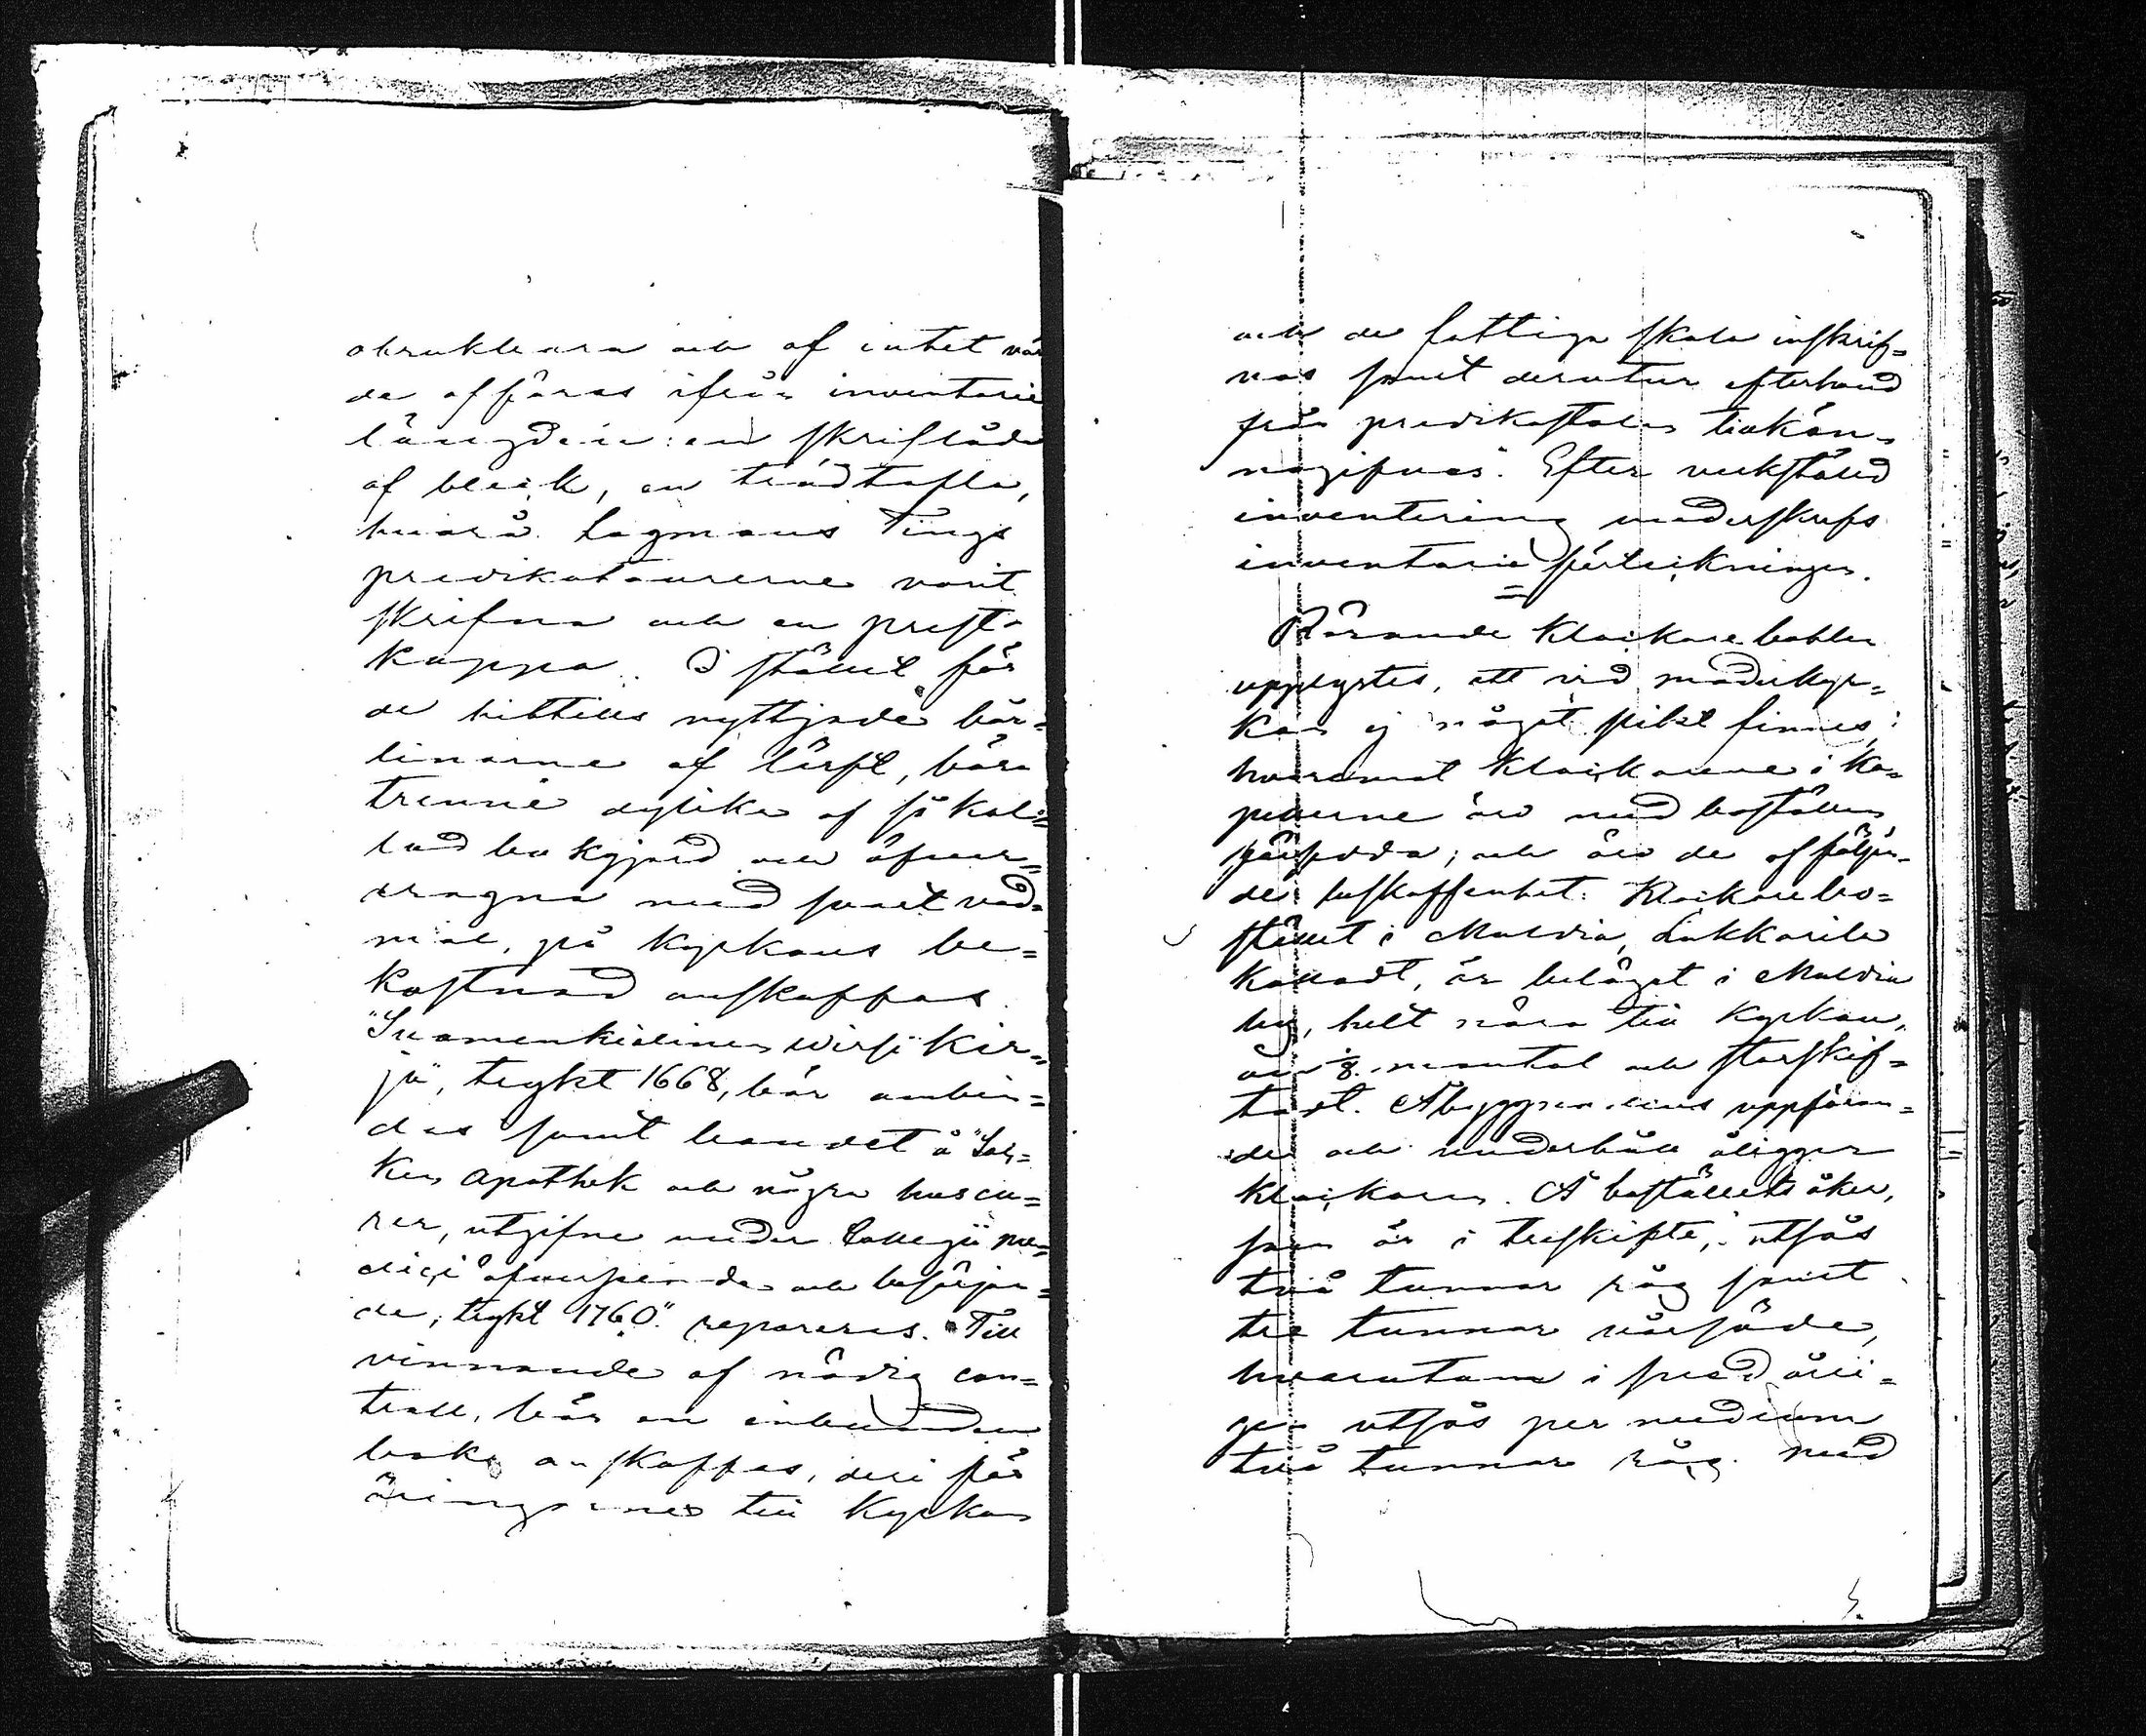 obrukbara och af intet vär
de afföras ifrån inventarie
längden: en skriflåda
af bleck, en trädtafla,
hvarå Lagmans Tings
predikotourerne varit
skrifna och en prest-
kappa. I stället för
de hittills nyttjade bår-
linorne af lärft, böra
trenne dylike af så kal-
lad bukgjord och öfver-
dragna med svart vad-
mal, på kyrkans be-
kostnad anskaffas.
"Suomenkielinen Wirsi Kir-
ja", tryckt 1668, bör ombin-
das samt bandet å "
Apothek och några huscu-
rer, utgifne under Collegii me-
dici åfverseende och besörjan-
de, tryckt 1760" repareras. Till
vinnande af nödig con-
troll, bör en inbunden
bok anskaffas, deri för
äringarne till Kyrkan
och de fattiga skola inskrif-
vas samt derutur efterhand
från predikstolen tillkän-
nagifvas. Efter verkställd
inventering underskrefs
inventarie förteckningen.
Rörande Klockare bohlen
upplystes, att vid moderkyr-
kan ej något sådant finnes;
hvaremot Klockarene i Ka-
pellerne äro med boställen
försedda; och äro de af följan-
de beskaffenhet: Klockarebo-
stället i Muldia, Lukkarila
kalladt, är beläget i Muldia
by, helt nära till Kyrkan,
om 1/8 mantal och storskif-
tadt. Åbyggnadens uppföran-
de och underhåll åligger
Klockaren. Å boställets åker,
som är i treskifte, utsås
två tunnor råg samt
tre tunnor vårsäde,
hvarutom i svedjeråg
utsås per medium
två tunnor råg. Med